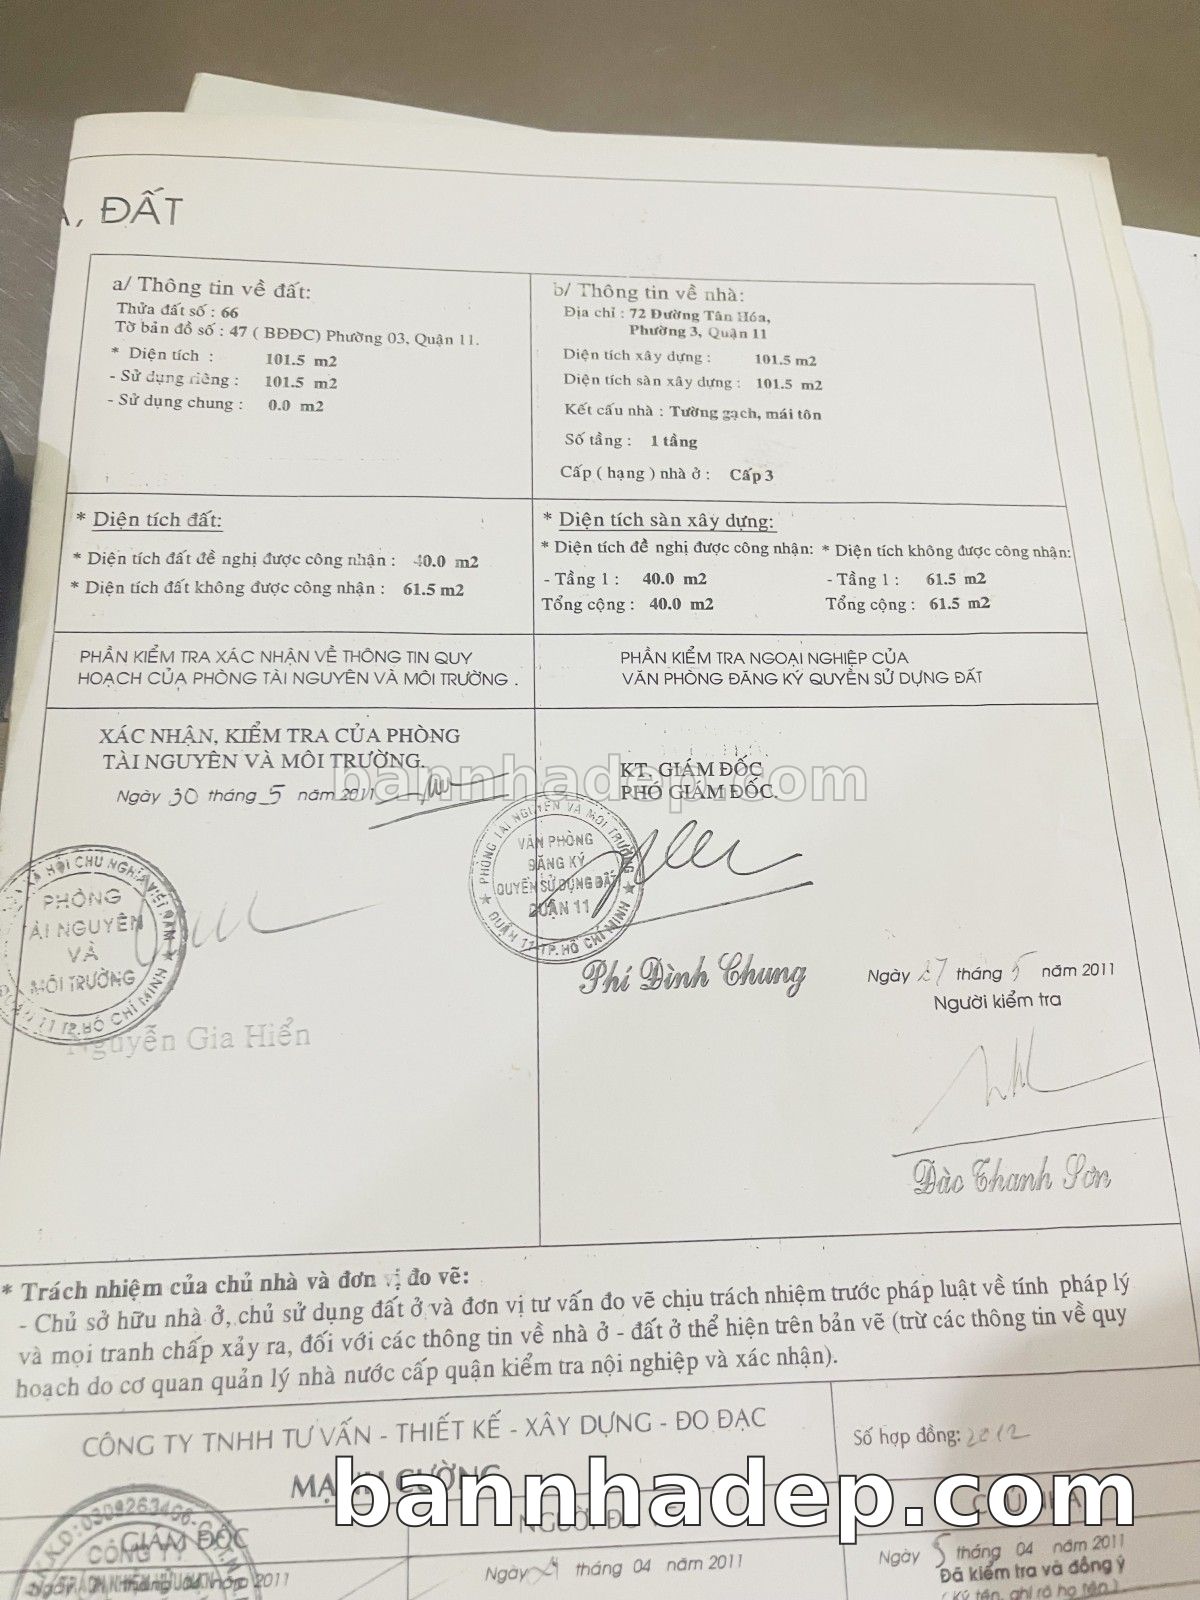 , ĐẤT
a/ Thông tin về đất:
Thửa đất số : 66
Tờ bản đồ số : 47 ( BĐĐC) Phường 03, Quận 11.
* Diện tích : 101.5 m2
- Sử dụng riêng : 101.5 m2
- Sử dụng chung : 0.0 m2
b/ Thông tin về nhà:
Địa chỉ : 72 Đường Tân Hóa,
Phường 3, Quận 11
Diện tích xây dựng : 101.5 m2
Diện tích sàn xây dựng : 101.5 m2
Kết cấu nhà : Tường gạch, mái tôn
Số tầng : 1 tầng
Cấp ( hạng ) nhà ở : Cấp 3
* Diện tích đất:
* Diện tích đất đề nghị được công nhận : 40.0 m2
* Diện tích đất không được công nhận : 61.5 m2
* Diện tích sàn xây dựng:
* Diện tích đề nghị được công nhận: * Diện tích không được công nhận:
- Tầng 1 : 40.0 m2 - Tầng 1 : 61.5 m2
Tổng cộng : 40.0 m2 Tổng cộng : 61.5 m2
PHẦN KIỂM TRA XÁC NHẬN VỀ THÔNG TIN QUY
HOẠCH CỦA PHÒNG TÀI NGUYÊN VÀ MÔI TRƯỜNG .
PHẦN KIỂM TRA NGOẠI NGHIỆP CỦA
VĂN PHÒNG ĐĂNG KÝ QUYỀN SỬ DỤNG ĐẤT
XÁC NHẬN, KIỂM TRA CỦA PHÒNG
TÀI NGUYÊN VÀ MÔI TRƯỜNG.
Ngày 30 tháng 5 năm 2011
bannhadep.com
KT. GIÁM ĐỐC
PHÓ GIÁM ĐỐC.
PHÒNG TÀI NGUYÊN VÀ MÔI TRƯỜNG
VĂN PHÒNG
ĐĂNG KÝ
QUYỀN SỬ DỤNG ĐẤT
QUẬN 11
QUẬN 11 TP. HỒ CHÍ MINH
XÃ HỘI CHỦ NGHĨA VIỆT NAM
PHÒNG
TÀI NGUYÊN
VÀ
MÔI TRƯỜNG
QUẬN 11 TP. HỒ CHÍ MINH
Nguyễn Gia Hiển
Phí Đình Chung
Ngày 27 tháng 5 năm 2011
Người kiểm tra
Đào Thanh Sơn
* Trách nhiệm của chủ nhà và đơn vị đo vẽ:
- Chủ sở hữu nhà ở, chủ sử dụng đất ở và đơn vị tư vấn đo vẽ chịu trách nhiệm trước pháp luật về tính pháp lý
và mọi tranh chấp xảy ra, đối với các thông tin về nhà ở - đất ở thể hiện trên bản vẽ (trừ các thông tin về quy
hoạch do cơ quan quản lý nhà nước cấp quận kiểm tra nội nghiệp và xác nhận).
CÔNG TY TNHH TƯ VẤN - THIẾT KẾ - XÂY DỰNG - ĐO ĐẠC
MẠNH CƯỜNG
Số hợp đồng: 2012
bannhadep.com
GIÁM ĐỐC
CÔNG TY
NGƯỜI ĐO
CHỦ NHÀ
Ngày tháng 04 năm 2011
Ngày 5 tháng 04 năm 2011
Đã kiểm tra và đồng ý
( Ký tên, ghi rõ họ tên )